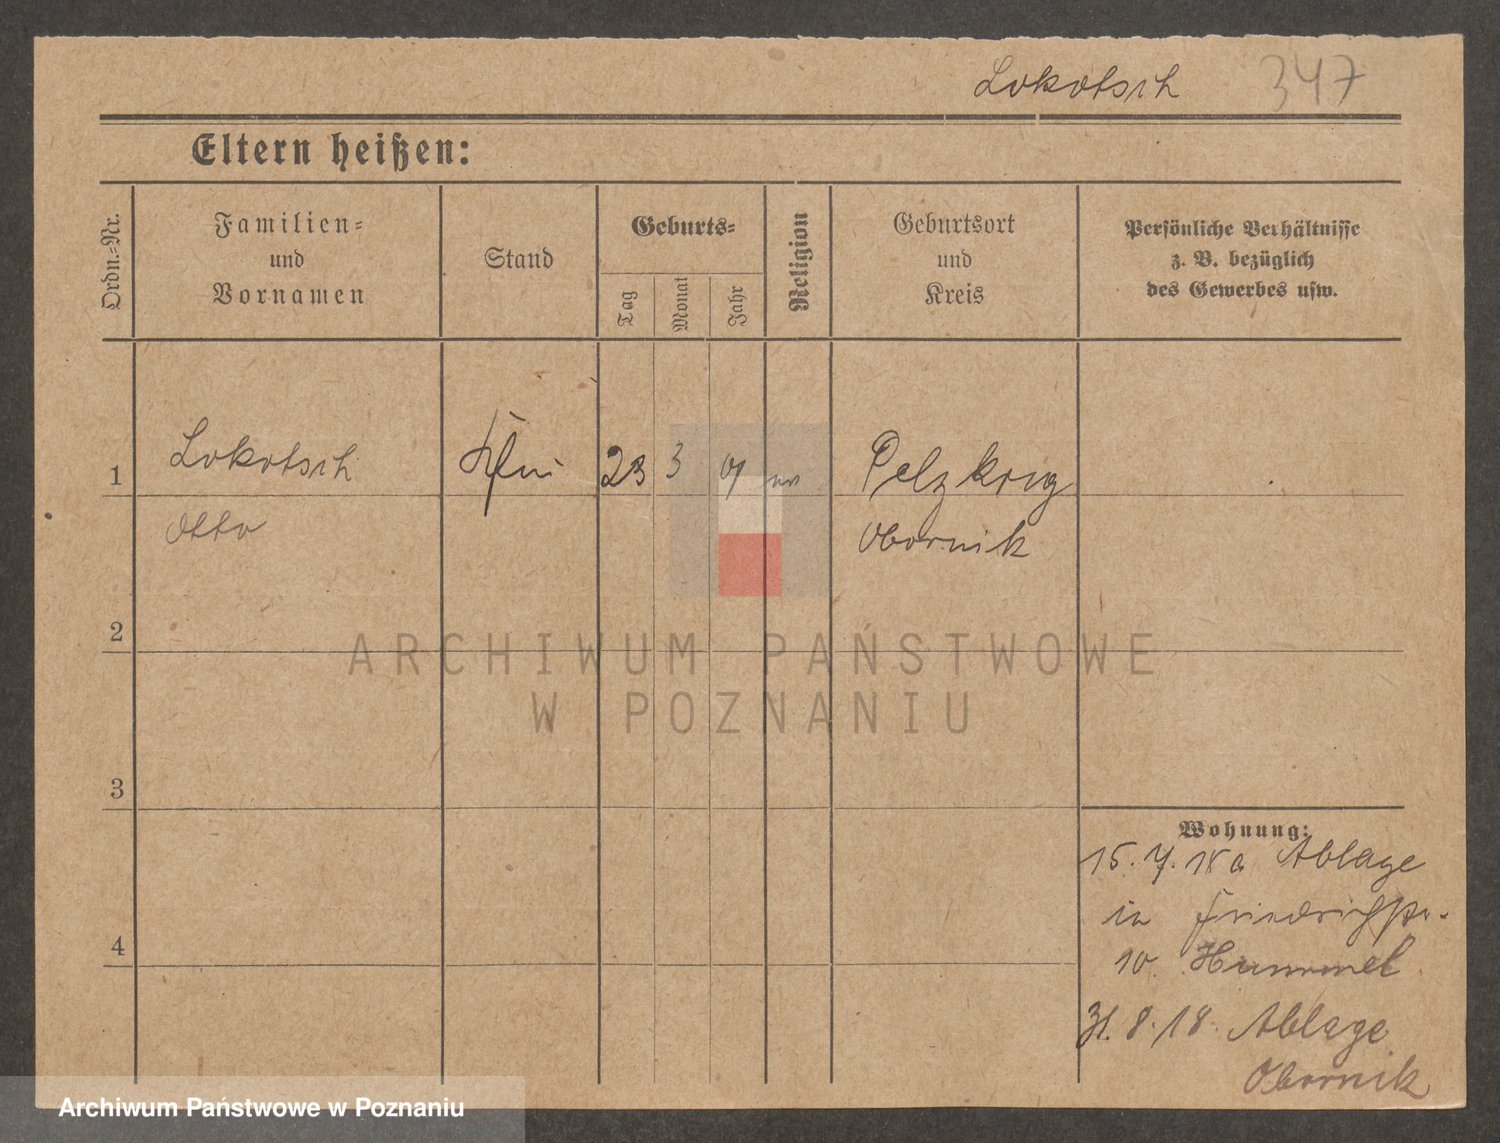 Lokotsch 347
Eltern heißen:
Ordn.-Nr.
Familien-
und
Vornamen
Stand
Geburts-
Tag
Monat
Jahr
Religion
Geburtsort
und
Kreis
Persönliche Verhältnisse
z. B. bezüglich
des Gewerbes usw.
1 Lokotsch 23 3 ev Pelzkrug
Otto Obornik
2
3
4
Wohnung:
15. 7. 18 a Ablage
in Friedrichstr.
10 Hummel
31. 8. 18 Ablage
Obornik
ARCHIWUM PAŃSTWOWE
W POZNANIU
Archiwum Państwowe w Poznaniu